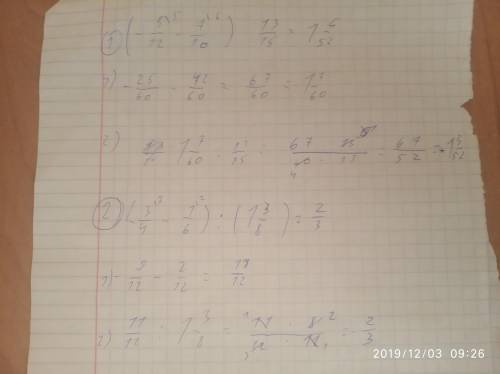 ① (-5/12 - 7/10) 13/15 = 1 6/52
1) -25/60 - 42/60 = 67/60 = 1 7/60
2) 1 7/60 : 13/15 = 67 · 15 / 60 · 13 = 67/52 = 1 15/52
② (3/4 - 1/6) : (1 3/8) = 2/3
1) - 9/12 - 2/12 = 11/12
2) 11/12 : 1 3/8 = 11 · 8 / 12 · 11 = 2/3
2019/12/03 09:26